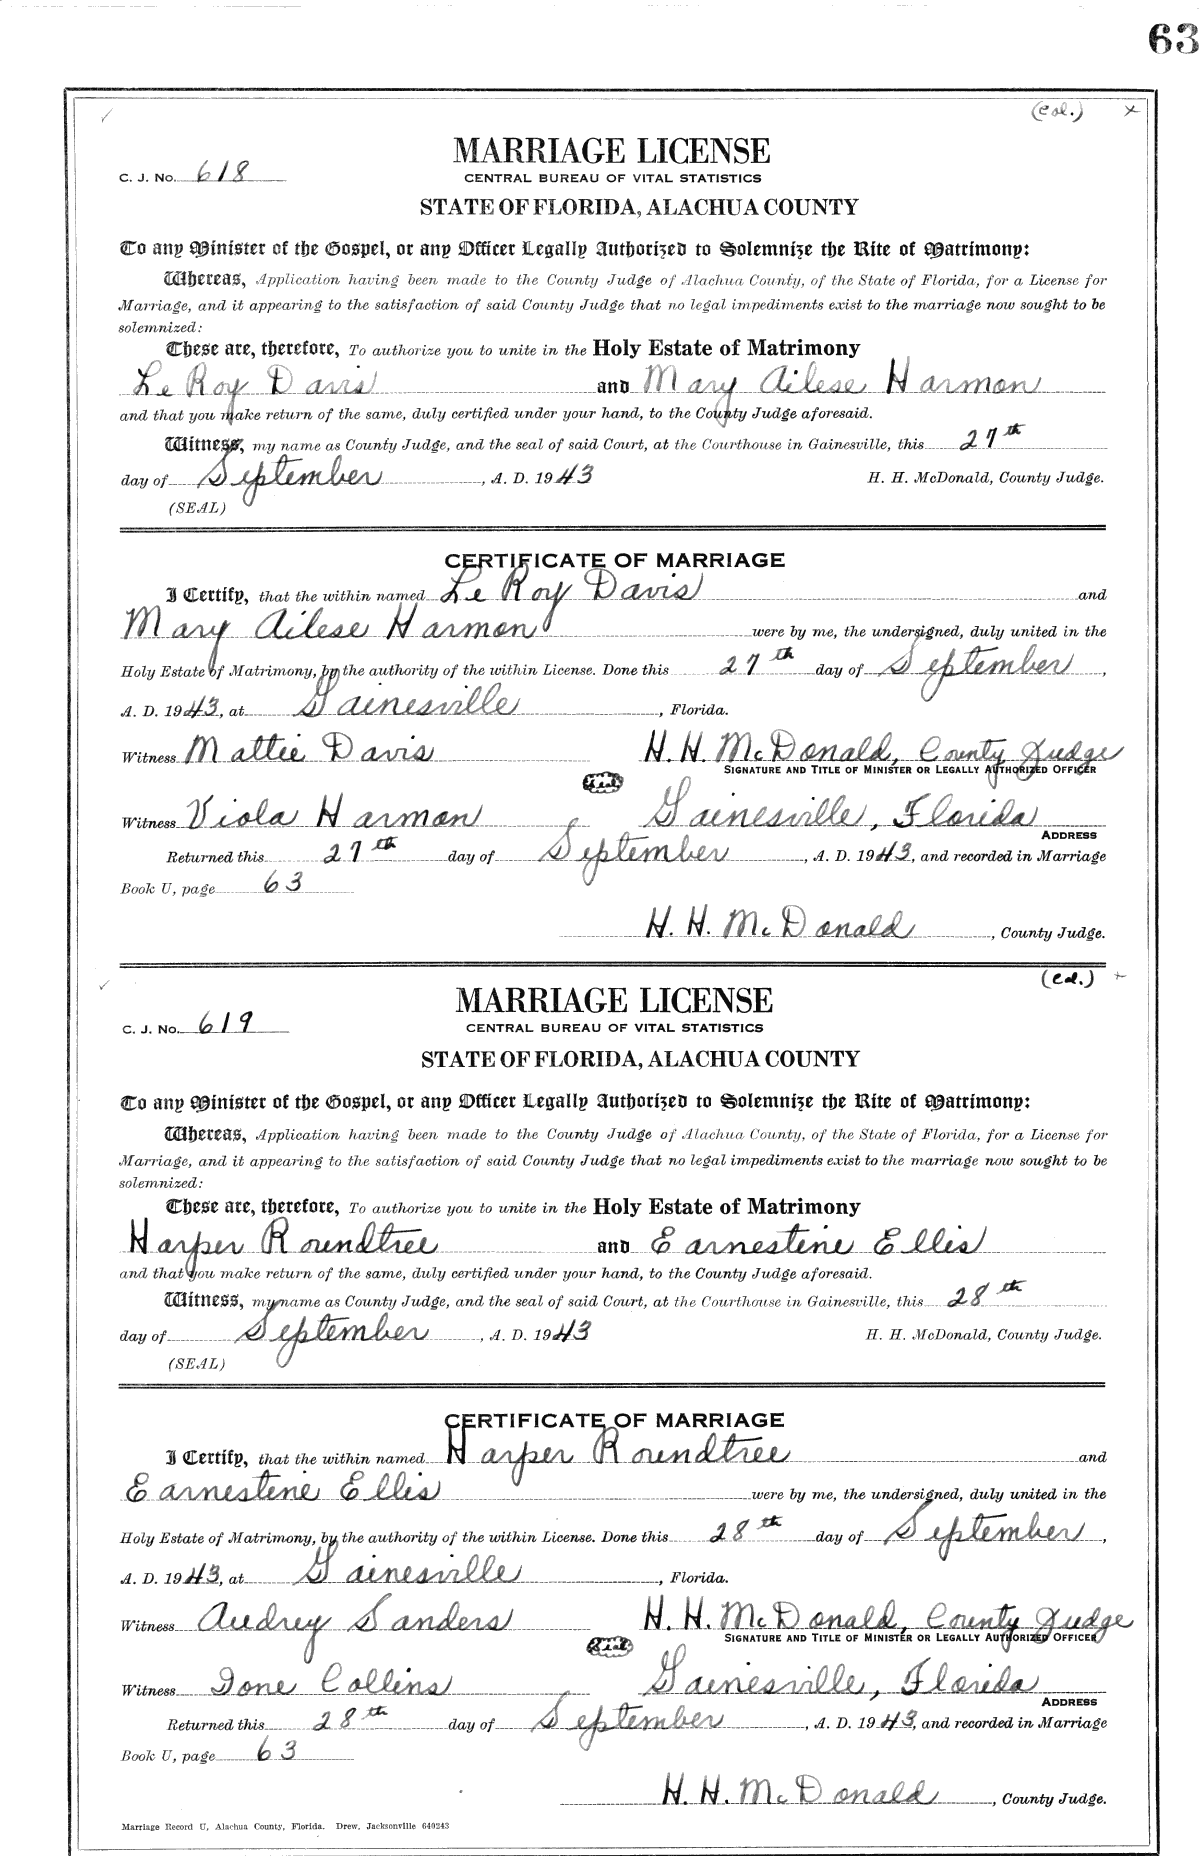 63
(Col.) x
MARRIAGE LICENSE
C. J. No. 618
CENTRAL BUREAU OF VITAL STATISTICS
STATE OF FLORIDA, ALACHUA COUNTY
To any Minister of the Gospel, or any Officer Legally Authorized to Solemnize the Rite of Matrimony:
Whereas, Application having been made to the County Judge of Alachua County, of the State of Florida, for a License for
Marriage, and it appearing to the satisfaction of said County Judge that no legal impediments exist to the marriage now sought to be
solemnized:
These are, therefore, To authorize you to unite in the Holy Estate of Matrimony
Le Roy Davis and Mary Ailese Harmon
and that you make return of the same, duly certified under your hand, to the County Judge aforesaid.
Witness, my name as County Judge, and the seal of said Court, at the Courthouse in Gainesville, this 27th
day of September, A. D. 1943 H. H. McDonald, County Judge.
(SEAL)
CERTIFICATE OF MARRIAGE
I Certify, that the within named Le Roy Davis and
Mary Ailese Harmon were by me, the undersigned, duly united in the
Holy Estate of Matrimony, by the authority of the within License. Done this 27th day of September,
A. D. 1943, at Gainesville, Florida.
Witness Mattie Davis H. H. McDonald, County Judge
SIGNATURE AND TITLE OF MINISTER OR LEGALLY AUTHORIZED OFFICER
Seal
Witness Viola Harmon Gainesville, Florida
ADDRESS
Returned this 27th day of September, A. D. 1943, and recorded in Marriage
Book U, page 63
H. H. McDonald, County Judge.
(Col.) +
MARRIAGE LICENSE
C. J. No. 619
CENTRAL BUREAU OF VITAL STATISTICS
STATE OF FLORIDA, ALACHUA COUNTY
To any Minister of the Gospel, or any Officer Legally Authorized to Solemnize the Rite of Matrimony:
Whereas, Application having been made to the County Judge of Alachua County, of the State of Florida, for a License for
Marriage, and it appearing to the satisfaction of said County Judge that no legal impediments exist to the marriage now sought to be
solemnized:
These are, therefore, To authorize you to unite in the Holy Estate of Matrimony
Harper Roundtree and Earnestine Ellis
and that you make return of the same, duly certified under your hand, to the County Judge aforesaid.
Witness, my name as County Judge, and the seal of said Court, at the Courthouse in Gainesville, this 28th
day of September, A. D. 1943 H. H. McDonald, County Judge.
(SEAL)
CERTIFICATE OF MARRIAGE
I Certify, that the within named Harper Roundtree and
Earnestine Ellis were by me, the undersigned, duly united in the
Holy Estate of Matrimony, by the authority of the within License. Done this 28th day of September,
A. D. 1943, at Gainesville, Florida.
Witness Audrey Sanders H. H. McDonald, County Judge
SIGNATURE AND TITLE OF MINISTER OR LEGALLY AUTHORIZED OFFICER
Seal
Witness Ione Collins Gainesville, Florida
ADDRESS
Returned this 28th day of September, A. D. 1943, and recorded in Marriage
Book U, page 63
H. H. McDonald, County Judge.
Marriage Record U, Alachua County, Florida. Drew, Jacksonville 640243